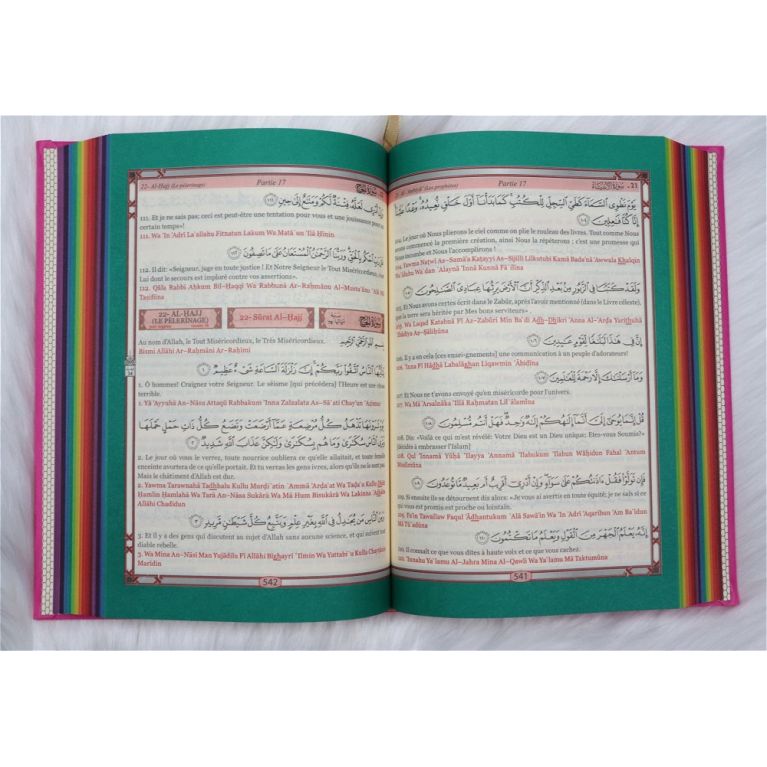 22- Al-Hajj (Le pèlerinage)
Partie 17
سورة الحج
111. Et je ne sais pas; ceci est peut-être une tentation pour vous et une jouissance pour un
certain temps»!
111. Wa 'In 'Adrī La`allahu Fitnatun Lakum Wa Matā`un 'Ilá Ĥīnin
112. Il dit: «Seigneur, juge en toute justice ! Et Notre Seigneur le Tout Miséricordieux, c'est
Lui dont le secours est imploré contre vos assertions».
112. Qāla Rabbi Aĥkum Bil-Ĥaqqi Wa Rabbunā Ar-Raĥmānu Al-Musta`ānu `Alá Mā
Taşifūna
22- AL-HAJJ
(LE PÈLERINAGE)
22- Sūrat Al-Ĥajj
سورة الحج
Au nom d'Allah, le Tout Miséricordieux, le Très Miséricordieux.
Bismi Allāhi Ar-Raĥmāni Ar-Raĥīmi
بسم الله الرحمن الرحيم
يَا أَيُّهَا النَّاسُ اتَّقُوا رَبَّكُمْ إِنَّ زَلْزَلَةَ السَّاعَةِ شَيْءٌ عَظِيمٌ ١
1. Ô hommes! Craignez votre Seigneur. Le séisme [qui précédera] l'Heure est une chose
terrible.
1. Yā 'Ayyuhā An-Nāsu Attaqū Rabbakum 'Inna Zalzalata As-Sā`ati Chay'un `Ažīmun
يَوْمَ تَرَوْنَهَا تَذْهَلُ كُلُّ مُرْضِعَةٍ عَمَّا أَرْضَعَتْ وَتَضَعُ كُلُّ ذَاتِ حَمْلٍ حَمْلَهَا
وَتَرَى النَّاسَ سُكَارَى وَمَا هُم بِسُكَارَى وَلَكِنَّ عَذَابَ اللَّهِ شَدِيدٌ ٢
2. Le jour où vous le verrez, toute nourrice oubliera ce qu'elle allaitait, et toute femelle
enceinte avortera de ce qu'elle portait. Et tu verras les gens ivres, alors qu'ils ne le sont pas.
Mais le châtiment d'Allah est dur.
2. Yawma Tarawnahā Tadhhalu Kullu Murđi`atin `Ammā 'Arđa`at Wa Tađa`u Kullu Dhāti
Ĥamlin Ĥamlahā Wa Tará An-Nāsa Sukārá Wa Mā Hum Bisukārá Wa Lakinna `Adhāba
Allāhi Chadīdun
وَمِنَ النَّاسِ مَن يُجَادِلُ فِي اللَّهِ بِغَيْرِ عِلْمٍ وَيَتَّبِعُ كُلَّ شَيْطَانٍ مَّرِيدٍ ٣
3. Et il y a des gens qui discutent au sujet d'Allah sans aucune science, et qui suivent tout
diable rebelle.
3. Wa Mina An-Nāsi Man Yujādilu Fī Allāhi Bighayri `Ilmin Wa Yattabi`u Kulla Chayţānin
Marīdin
542
Partie 17
21
يَوْمَ نَطْوِي السَّمَاءَ كَطَيِّ السِّجِلِّ لِلْكُتُبِ كَمَا بَدَأْنَا أَوَّلَ خَلْقٍ نُّعِيدُهُ وَعْدًا عَلَيْنَا
إِنَّا كُنَّا فَاعِلِينَ
104. Le jour où Nous plierons le ciel comme on plie le rouleau des livres. Tout comme Nous
avons commencé la première création, ainsi Nous la répéterons ; c'est une promesse qui
Nous incombe et Nous l'accomplirons !
104. Yawma Naţwī As-Samā'a Kaţayyi As-Sijilli Lilkutubi Kamā Bada'nā 'Awwala Khalqin
Nu`īduhu Wa`dan `Alaynā 'Innā Kunnā Fā`ilīna
وَلَقَدْ كَتَبْنَا فِي الزَّبُورِ مِن بَعْدِ الذِّكْرِ أَنَّ الْأَرْضَ يَرِثُهَا عِبَادِيَ الصَّالِحُونَ
105. Et Nous avons certes écrit dans le Zabûr, après l'avoir mentionné (dans le Livre céleste),
que la terre sera héritée par Mes bons serviteurs».
105. Wa Laqad Katabnā Fī Az-Zabūri Min Ba`di Adh-Dhikri 'Anna Al-'Arđa Yarithuhā
`Ibādiya Aş-Şāliĥūna
إِنَّ فِي هَذَا لَبَلَاغًا لِّقَوْمٍ عَابِدِينَ
106. Il y a en cela [ces enseignements] une communication à un peuple d'adorateurs!
106. 'Inna Fī Hādhā Labalāghan Liqawmin `Ābidīna
وَمَا أَرْسَلْنَاكَ إِلَّا رَحْمَةً لِّلْعَالَمِينَ
107. Et Nous ne t'avons envoyé qu'en miséricorde pour l'univers.
107. Wa Mā 'Arsalnāka 'Illā Raĥmatan Lil`ālamīna
قُلْ إِنَّمَا يُوحَى إِلَيَّ أَنَّمَا إِلَهُكُمْ إِلَهٌ وَاحِدٌ فَهَلْ أَنتُم مُّسْلِمُونَ ١٠٨
108. Dis: «Voilà ce qui m'est révélé: Votre Dieu est un Dieu unique; Etes-vous Soumis?»
[décidés à embrasser l'Islam]
108. Qul 'Innamā Yūĥá 'Ilayya 'Annamā 'Ilahukum 'Ilahun Wāĥidun Fahal 'Antum
Muslimūna
فَإِن تَوَلَّوْا فَقُلْ آذَنتُكُمْ عَلَى سَوَاءٍ وَإِنْ أَدْرِي أَقَرِيبٌ أَم بَعِيدٌ مَّا تُوعَدُونَ ١٠٩
109. Si ensuite ils se détournent dis alors: «Je vous ai avertis en toute équité; je ne sais si ce
qui vous est promis est proche ou lointain.
109. Fa'in Tawallaw Faqul 'Ādhantukum `Alá Sawā'in Wa 'In 'Adrī 'Aqarībun 'Am Ba`īdun
Mā Tū`adūna
إِنَّهُ يَعْلَمُ الْجَهْرَ مِنَ الْقَوْلِ وَيَعْلَمُ مَا تَكْتُمُونَ ١١٠
110. Il connaît ce que vous dites à haute voix et ce que vous cachez.
110. 'Innahu Ya`lamu Al-Jahra Mina Al-Qawli Wa Ya`lamu Mā Taktumūna
541